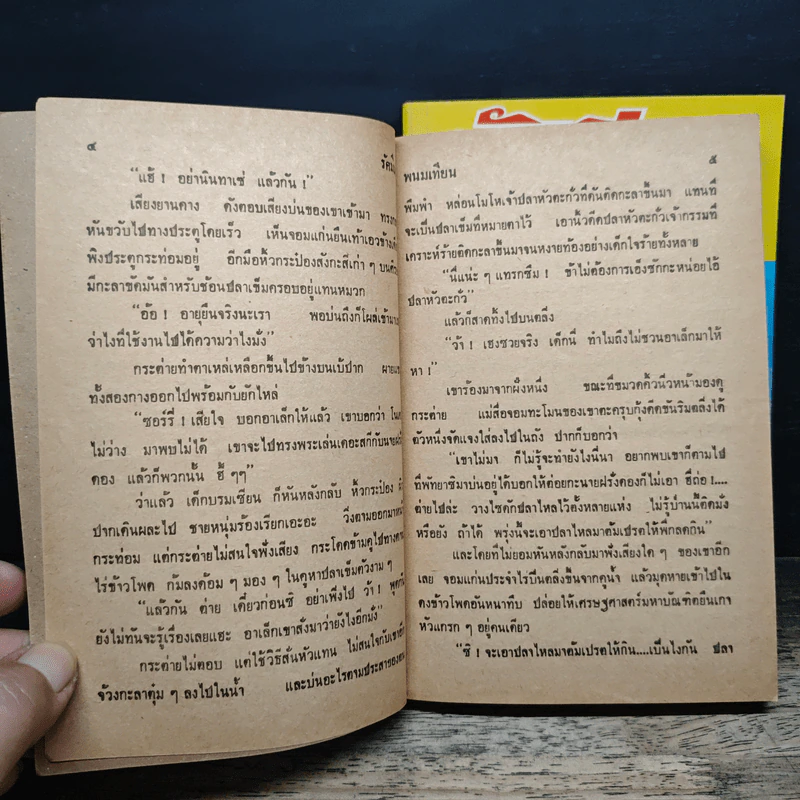 ๔
รัตน
“แฮ้ ! อย่านินทาเซ่ แล้วกัน !”
เสียงยานคาง ดังตอบเสียงบ่นของเขาเข้ามา
หันขวับไปทางประตูโดยเร็ว เห็นจอมแก่นยืนเท้าเอวข้าง
พิงประตูกระท่อมอยู่ อีกมือหิ้วกระป๋องสังกะสีเก่า ๆ บน
มีกะลาขัดมันสำหรับช้อนปลาเข็มครอบอยู่แทนหมวก
“อ้อ ! อายุยืนจริงนะเรา พอบ่นถึงก็โผล่เข้ามา
ว่าไงที่ใช้งานไปได้ความว่าไงมั่ง”
กระต่ายทำตาเหล่เหลือกขึ้นไปข้างบนเบ้ปาก
ทั้งสองกางออกไปพร้อมกับยักไหล่
“ซอร์รี่ ! เสียใจ บอกอาเล็กให้แล้ว เขาบอกว่า
ไม่ว่าง มาพบไม่ได้ เขาจะไปทรงพระเล่นเดอะสกีกับ
ดอง แล้วก็พวกนั้น ฮี้ ๆๆ”
ว่าแล้ว เด็กบรมเซียน ก็หันหลังกลับ หิ้วกระป๋อง
ปากเดินผละไป ชายหนุ่มร้องเรียกเอะอะ วิ่งตามออกมา
กระท่อม แต่กระต่ายไม่สนใจฟังเสียง กระโดดข้ามคูไปทาง
ไร่ข้าวโพด ก้มลงด้อม ๆ มอง ๆ ในคูหาปลาเข็มตัวงาม ๆ
“แล้วกัน ต่าย เดี๋ยวก่อนซิ อย่าเพิ่งไป ว้า !
ยังไม่ทันจะรู้เรื่องเลยแฮะ อาเล็กเขาสั่งมาว่ายังไงอีกมั่ง”
กระต่ายไม่ตอบ แต่ใช้วิธีสั่นหัวแทน ไม่สนใจกับ
จ้วงกะลาตุ๋ม ๆ ลงไปในน้ำ และบ่นอะไรตามประสา
พนมเทียน
๕
พึมพำ หล่อนโมโหเจ้าปลาหัวตะกั่วที่ดันติดกะลาขึ้นมา แทนที่
จะเป็นปลาเข็มที่หมายตาไว้ เอานิ้วดีดปลาหัวตะกั่วเจ้ากรรมที่
เคราะห์ร้ายติดกะลาขึ้นมาจนหงายท้องอย่างเด็กใจร้ายทั้งหลาย
“นี่แน่ะ ๆ แทรกซึม ! ข้าไม่ต้องการเอ็งซักกะหน่อยไอ้
ปลาหัวตะกั่ว”
แล้วก็สาดทิ้งไปบนตลิ่ง
“ว้า ! เฮงซวยจริง เด็กนี่ ทำไมถึงไม่ชวนอาเล็กมาให้
หา !”
เขาร้องมาจากฝั่งหนึ่ง ขณะที่ขมวดคิ้วนิ่วหน้ามองดู
กระต่าย แม่สื่อจอมทะโมนของเขาตะครุบกุ้งดีดขันริมตลิ่งได้
ตัวหนึ่งจัดแจงใส่ลงไปในถัง ปากก็บอกว่า
“เขาไม่มา ก็ไม่รู้จะทำยังไงนี่นา อยากพบเขาก็ตามไป
ที่พัทยาซิมาบ่นอยู่ได้บอกให้ต่อยกะนายฝรั่งดองก็ไม่เอา ฮึ่ถ่อ !....
ต่ายไปล่ะ วางไซดักปลาไหลไว้ตั้งหลายแห่ง ไม่รู้ป่านนี้ติดมั่ง
หรือยัง ถ้าได้ พรุ่งนี้จะเอาปลาไหลมาต้มเปรตให้พี่กลดกิน”
และโดยที่ไม่ยอมหันหลังกลับมาฟังเสียงใด ๆ ของเขาอีก
เลย จอมแก่นประจำไร่ปีนตลิ่งขึ้นจากคูน้ำ แล้วมุดหายเข้าไปใน
ดงข้าวโพดอันหนาทึบ ปล่อยให้เศรษฐศาสตร์มหาบัณฑิตยืนเกา
หัวแกรก ๆ อยู่คนเดียว
“ซี ! จะเอาปลาไหลมาต้มเปรตให้กิน....เป็นไงกัน ปลา